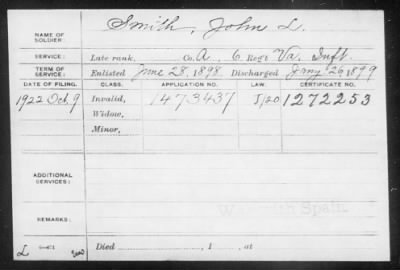 NAME OF SOLDIER: Smith, John L.
SERVICE: Late rank, Co. A, 6 Reg't Va. Inft.
TERM OF SERVICE: Enlisted June 28, 1898 Discharged Jany. 26, 1899
DATE OF FILING. CLASS. APPLICATION NO. LAW. CERTIFICATE NO.
1922 Oct. 9 Invalid, 1473437 5/20 1272253
Widow,
Minor,
ADDITIONAL SERVICES:
War with Spain
REMARKS:
Died , 1 , at